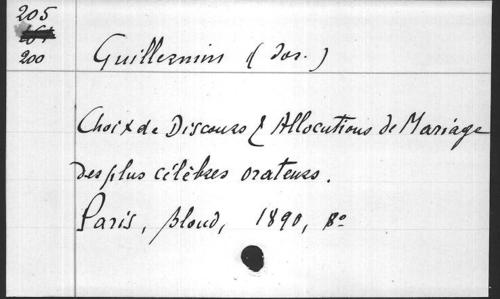 205
200
Guillermin (Jos.)
Choix de Discours & Allocutions de Mariage
des plus célèbres orateurs.
Paris, Bloud, 1890, 8°